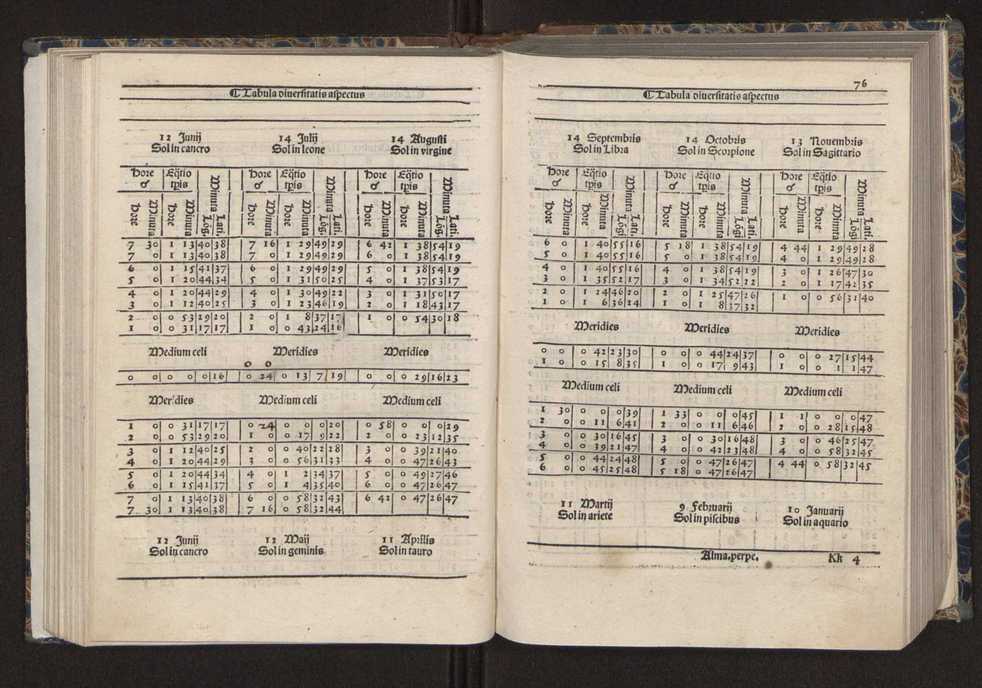 Tabula diuersitatis aspectus
12 Junij 14 Julij 14 Augusti
Sol in cancro Sol in leone Sol in virgine
Hore Eq̃tio Hore Eq̃tio Hore Eq̃tio
♂ tp̃is ♂ tp̃is ♂ tp̃is
Hore Minuta Hore Minuta Minuta Lōgi Lati. Hore Minuta Hore Minuta Minuta Lōgi Lati. Hore Minuta Hore Minuta Minuta Lōgi Lati.
7 30 1 13 40 38 7 16 1 29 49 29 6 42 1 38 54 19
7 0 1 13 40 38 7 0 1 29 49 29 6 0 1 38 54 19
6 0 1 15 41 37 6 0 1 29 49 29 5 0 1 38 54 19
5 0 1 20 44 34 5 0 1 31 50 25 4 0 1 37 53 17
4 0 1 20 44 29 4 0 1 30 49 22 3 0 1 31 50 17
3 0 1 12 40 25 3 0 1 23 46 19 2 0 1 18 43 17
2 0 0 53 29 20 2 0 1 8 37 17 1 0 0 54 30 18
1 0 0 31 17 17 1 0 0 43 24 16
Medium celi Meridies Meridies
0 0
0 0 0 0 0 16 0 24 0 13 7 19 0 0 0 29 16 23
Meridies Medium celi Medium celi
1 0 0 31 17 17 0 24 0 0 0 20 0 58 0 0 0 29
2 0 0 53 29 20 1 0 0 17 9 22 2 0 0 23 12 35
3 0 1 12 40 25 2 0 0 40 22 28 3 0 0 39 21 40
4 0 1 20 44 29 3 0 0 56 31 33 4 0 0 47 26 43
5 0 1 20 44 34 4 0 1 2 34 37 5 0 0 49 27 46
6 0 1 15 41 37 5 0 1 4 35 40 6 0 0 47 26 47
7 0 1 13 40 38 6 0 0 58 32 43 6 42 0 47 26 47
7 30 1 13 40 38 7 16 0 58 32 44
12 Junij 12 Maij 11 Aprilis
Sol in cancro Sol in geminis Sol in tauro
76
Tabula diuersitatis aspectus
14 Septembris 14 Octobris 13 Nouembris
Sol in Libra Sol in Scorpione Sol in Sagittario
Hore Eq̃tio Hore Eq̃tio Hore Eq̃tio
♂ tp̃is ♂ tp̃is ♂ tp̃is
Hore Minuta Hore Minuta Minuta Lōgi Lati. Hore Minuta Hore Minuta Minuta Lōgi Lati. Hore Minuta Hore Minuta Minuta Lōgi Lati.
6 0 1 40 55 16 5 18 1 38 54 19 4 44 1 29 49 28
5 0 1 40 55 16 5 0 1 38 54 19 4 0 1 29 49 28
4 0 1 40 55 16 4 0 1 38 54 19 3 0 1 26 47 30
3 0 1 40 55 16 3 0 1 34 52 22 2 0 1 17 42 35
2 0 1 24 46 20 2 0 1 25 47 26 1 0 0 56 31 40
1 0 1 6 36 24 1 0 1 8 37 32
Meridies Meridies Meridies
0 0 0 42 23 30 0 0 0 44 24 37 0 0 0 27 15 44
1 0 0 15 8 35 1 0 0 17 9 43 1 0 0 1 1 47
Medium celi Medium celi Medium celi
1 30 0 0 0 39 1 33 0 0 0 45 1 1 0 0 0 47
2 0 0 11 6 41 2 0 0 11 6 46 2 0 0 28 15 48
3 0 0 30 16 45 3 0 0 30 16 48 3 0 0 46 25 47
4 0 0 39 21 47 4 0 0 42 23 48 4 0 0 58 32 45
5 0 0 44 24 48 5 0 0 47 26 47 4 44 0 58 32 45
6 0 0 45 25 48 5 18 0 47 26 47
11 Martij 9 Februarij 10 Januarij
Sol in ariete Sol in piscibus Sol in aquario
Alma.perpe. Kk 4